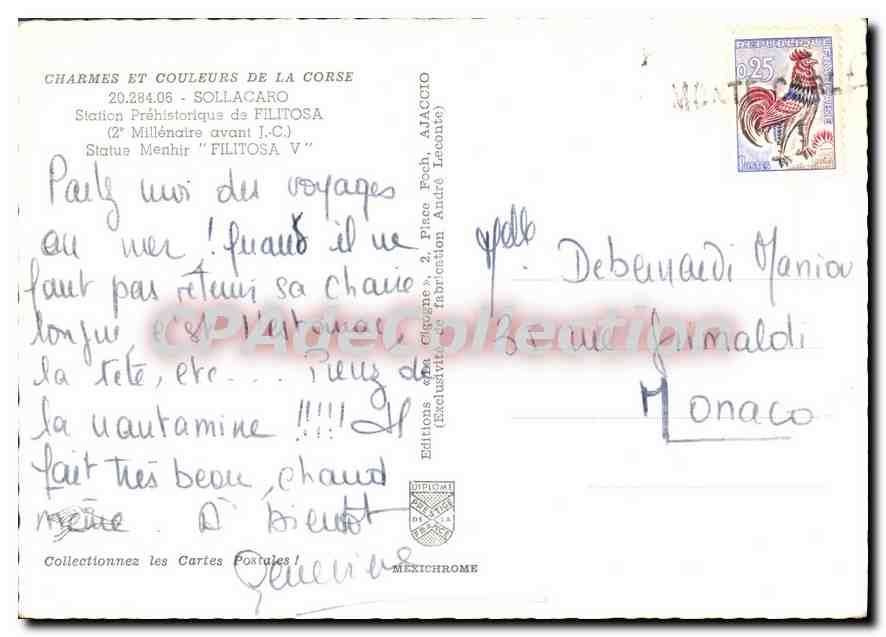 CHARMES ET COULEURS DE LA CORSE
20.284.06 - SOLLACARO
Station Préhistorique de FILITOSA
(2e Millénaire avant J.-C.)
Statue Menhir " FILITOSA V "
Parlez moi des voyages
en mer ! Quand il ne
faut pas retenir sa chaise
longue, c'est l'estomac,
la tête, etc.... Prenez de
la nautamine !!!! Il
fait très beau, chaud
même. A bientôt
Geneviève
Collectionnez les Cartes Postales !
Editions « La Cigogne », 2, Place Foch, AJACCIO
(Exclusivité de fabrication André Leconte)
DIPLOME
PRESTIGE
DE LA
FRANCE
MEXICHROME
REPUBLIQUE FRANÇAISE
0,25
Postes
MONTE-CARLO
Mlle Debernardi
Rue Grimaldi
Monaco
CPAdeCollection